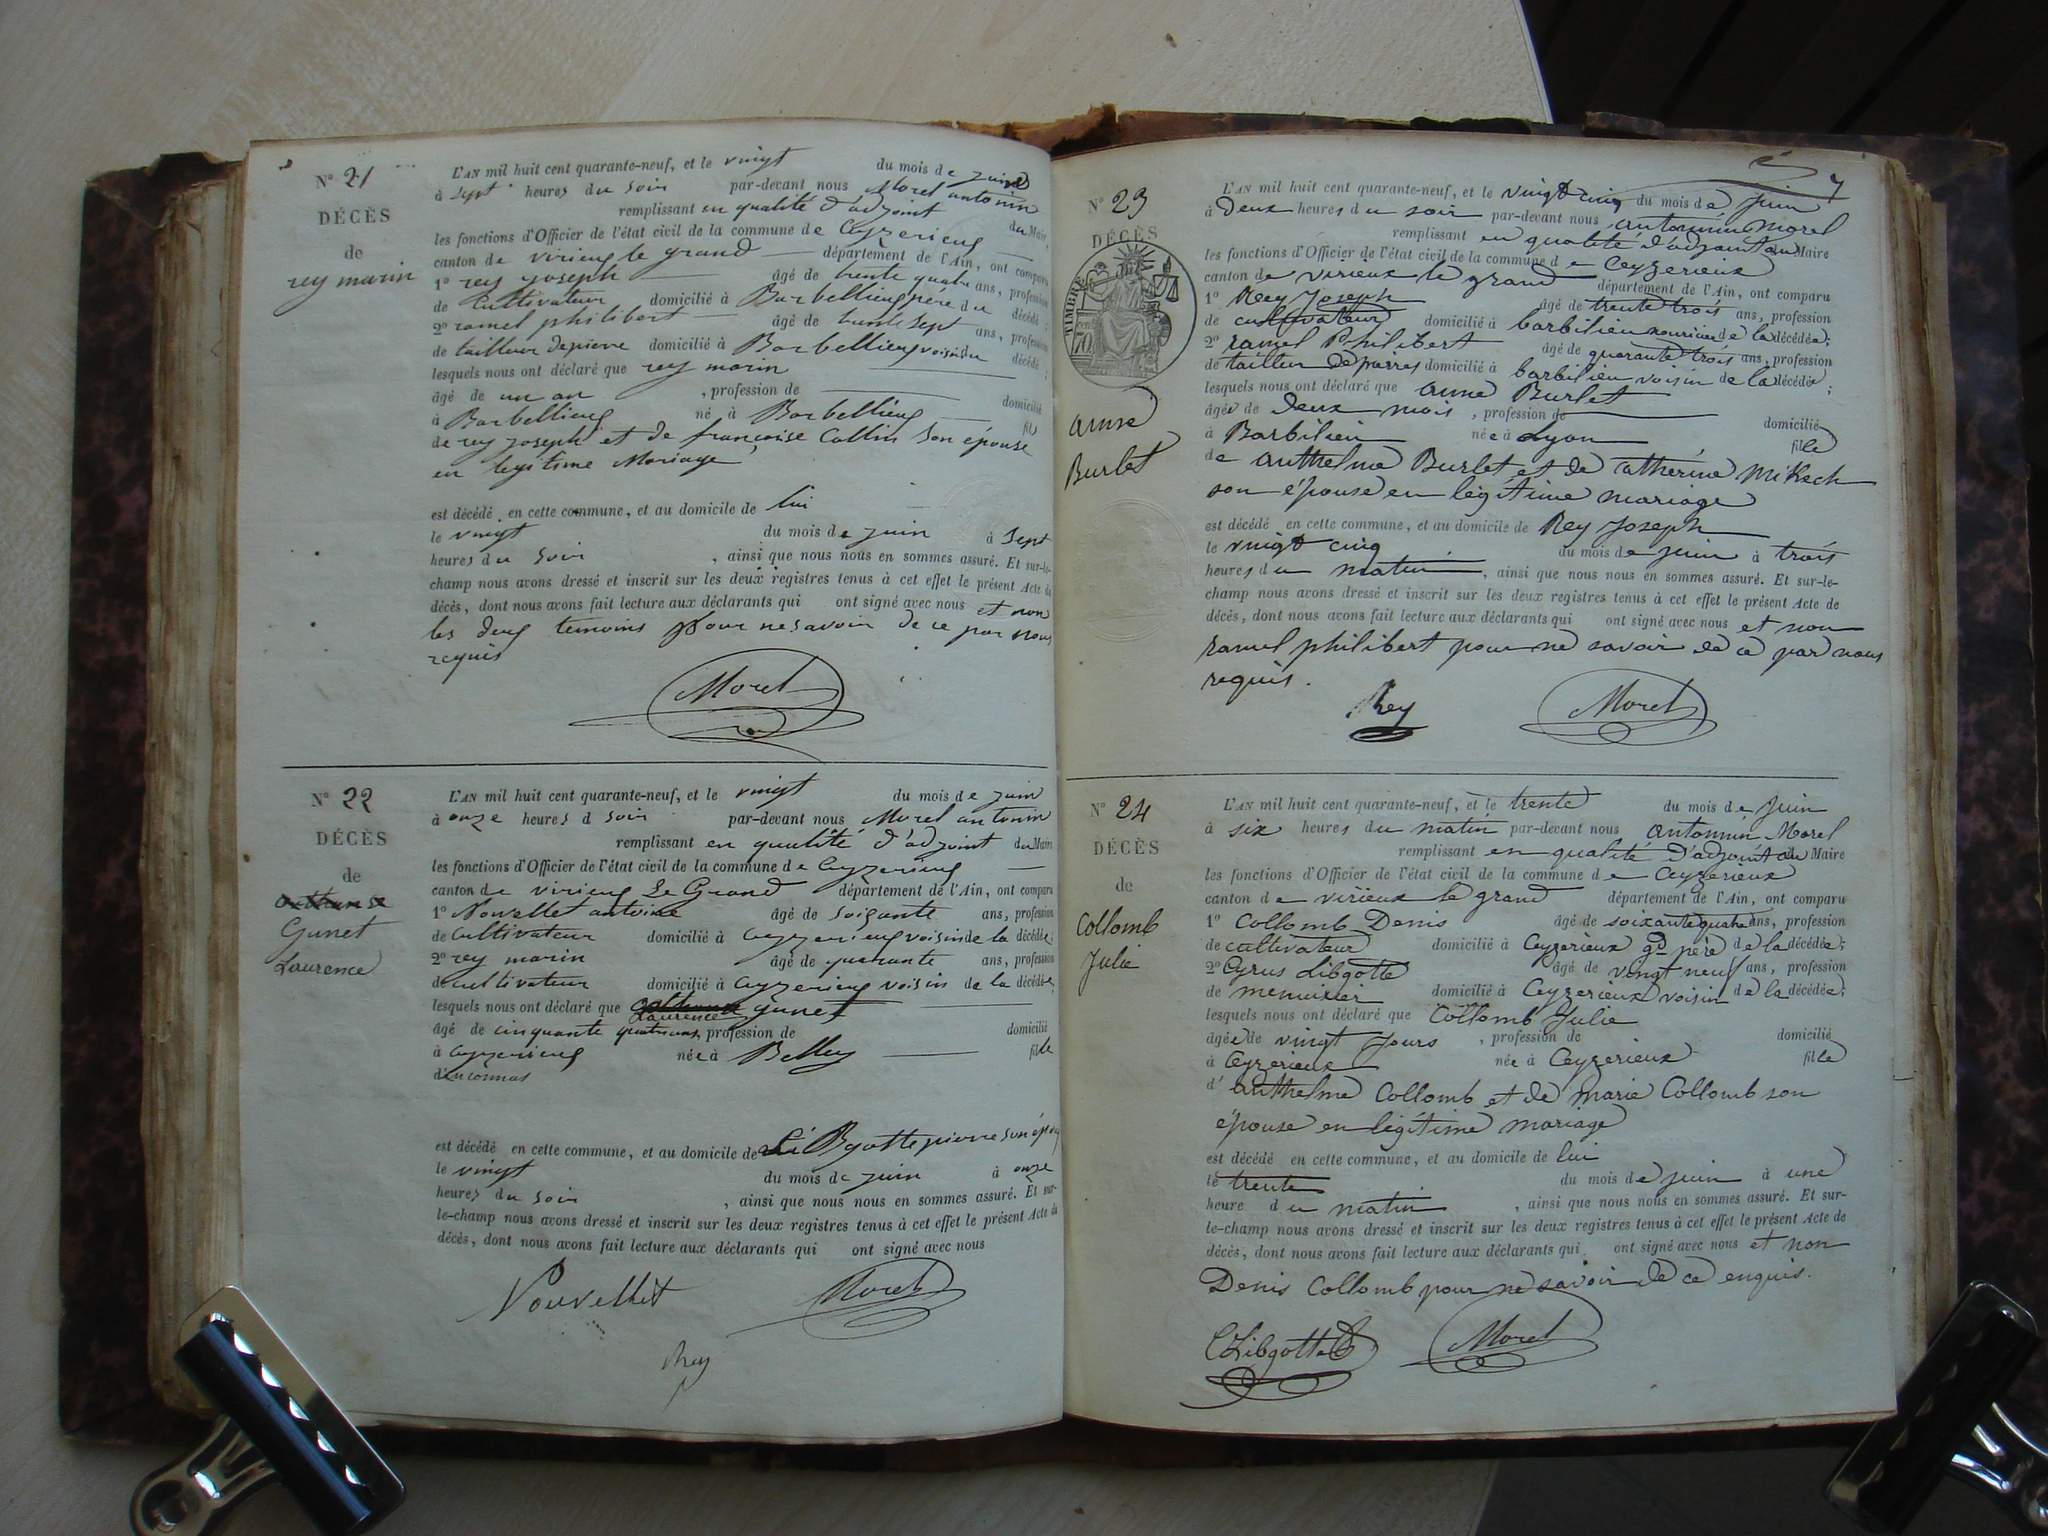 N° 21
DÉCÈS
de
rey marin
L'AN mil huit cent quarante-neuf, et le vingt du mois de juin
à sept heures du soir par-devant nous Morel antonin
remplissant en qualité d'adjoint du Maire
les fonctions d'Officier de l'état civil de la commune de Ceyzerieux
canton de virieux le grand département de l'Ain, ont comparu
1° rey joseph âgé de trente quatre ans, profession
de Cultivateur domicilié à Barbellieux père du décédé ;
2° ramel philibert âgé de trente sept ans, profession
de tailleur de pierre domicilié à Barbellieux voisin du décédé ;
lesquels nous ont déclaré que rey marin
âgé de un an , profession de domicilié
à Barbellieux né à Barbellieux fils
de rey joseph et de françoise Collin son épouse
en legitime Mariage
est décédé en cette commune, et au domicile de lui
le vingt du mois de juin à sept
heures du soir , ainsi que nous nous en sommes assuré. Et sur-le-
champ nous avons dressé et inscrit sur les deux registres tenus à cet effet le présent Acte de
décès, dont nous avons fait lecture aux déclarants qui ont signé avec nous et non
les deux temoins pour ne savoir de ce par nous
requis
Morel
N° 22
DÉCÈS
de
Gunet
Laurence
L'AN mil huit cent quarante-neuf, et le vingt du mois de juin
à onze heures d soir par-devant nous Morel antonin
remplissant en qualité d'adjoint du Maire
les fonctions d'Officier de l'état civil de la commune de Ceyzerieux
canton de virieux Le Grand département de l'Ain, ont comparu
1° Nouvellet antoine âgé de soixante ans, profession
de Cultivateur domicilié à ceyzerieux voisin de la décédée ;
2° rey marin âgé de quarante ans, profession
de cultivateur domicilié à ceyzerieux voisin de la décédée ;
lesquels nous ont déclaré que Laurence gunet
âgé de cinquante quatre ans, profession de domicilié
à ceyzerieux née à Belley fille
d'inconnus
est décédé en cette commune, et au domicile de Li Bgotte pierre son époux
le vingt du mois de juin à onze
heures du soir , ainsi que nous nous en sommes assuré. Et sur-
le-champ nous avons dressé et inscrit sur les deux registres tenus à cet effet le présent Acte de
décès, dont nous avons fait lecture aux déclarants qui ont signé avec nous
Nouvellet Morel
Rey
7
N° 23
DÉCÈS
TIMBRE
70
anne
Burlet
L'AN mil huit cent quarante-neuf, et le vingt cinq du mois de juin
à deux heures du soir par-devant nous antonnin Morel
remplissant en qualité d'adjoint au Maire
les fonctions d'Officier de l'état civil de la commune de Ceyzerieux
canton de virieux le grand département de l'Ain, ont comparu
1° Rey Joseph âgé de trente trois ans, profession
de cultivateur domicilié à barbilieu nouricier de la décédée ;
2° ramel Philibert âgé de quarante trois ans, profession
de tailleur de pierres domicilié à barbilieu voisin de la décédée ;
lesquels nous ont déclaré que anne Burlet
âgée de deux mois , profession de domicilié
à Barbilieu née à Lyon fille
de anthelme Burlet et de catherine Miksch
son épouse en légitime mariage
est décédé en cette commune, et au domicile de Rey Joseph
le vingt cinq du mois de juin à trois
heures du matin , ainsi que nous nous en sommes assuré. Et sur-le-
champ nous avons dressé et inscrit sur les deux registres tenus à cet effet le présent Acte de
décès, dont nous avons fait lecture aux déclarants qui ont signé avec nous et non
ramel philibert pour ne savoir de ce par nous
requis.
Rey Morel
N° 24
DÉCÈS
de
Collomb
Julie
L'AN mil huit cent quarante-neuf, et le trente du mois de juin
à six heures du matin par-devant nous antonnin Morel
remplissant en qualité d'adjoint au Maire
les fonctions d'Officier de l'état civil de la commune de Ceyzerieux
canton de virieux le grand département de l'Ain, ont comparu
1° Collomb Denis âgé de soixante quatre ans, profession
de cultivateur domicilié à Ceyzerieux gd père de la décédée ;
2° Cyrus Libgotte âgé de vingt neuf ans, profession
de menuisier domicilié à Ceyzerieux voisin de la décédée ;
lesquels nous ont déclaré que Collomb Julie
âgée de vingt jours , profession de domicilié
à Ceyzerieux née à Ceyzerieux fille
d' anthelme Collomb et de marie Collomb son
épouse en légitime mariage
est décédé en cette commune, et au domicile de lui
le trente du mois de juin à une
heure du matin , ainsi que nous nous en sommes assuré. Et sur-
le-champ nous avons dressé et inscrit sur les deux registres tenus à cet effet le présent Acte de
décès, dont nous avons fait lecture aux déclarants qui ont signé avec nous et non
Denis Collomb pour ne savoir de ce enquis.
CLibgotte Morel